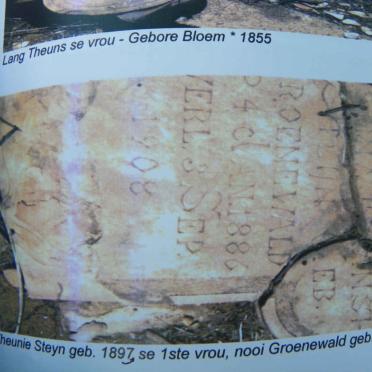 Lang Theuns se vrou - Gebore Bloem * 1855
NS
EB.
ROENEWALD
VERL 3 SEP.
1908
heunie Steyn geb. 1897, se 1ste vrou, nooi Groenewald geb